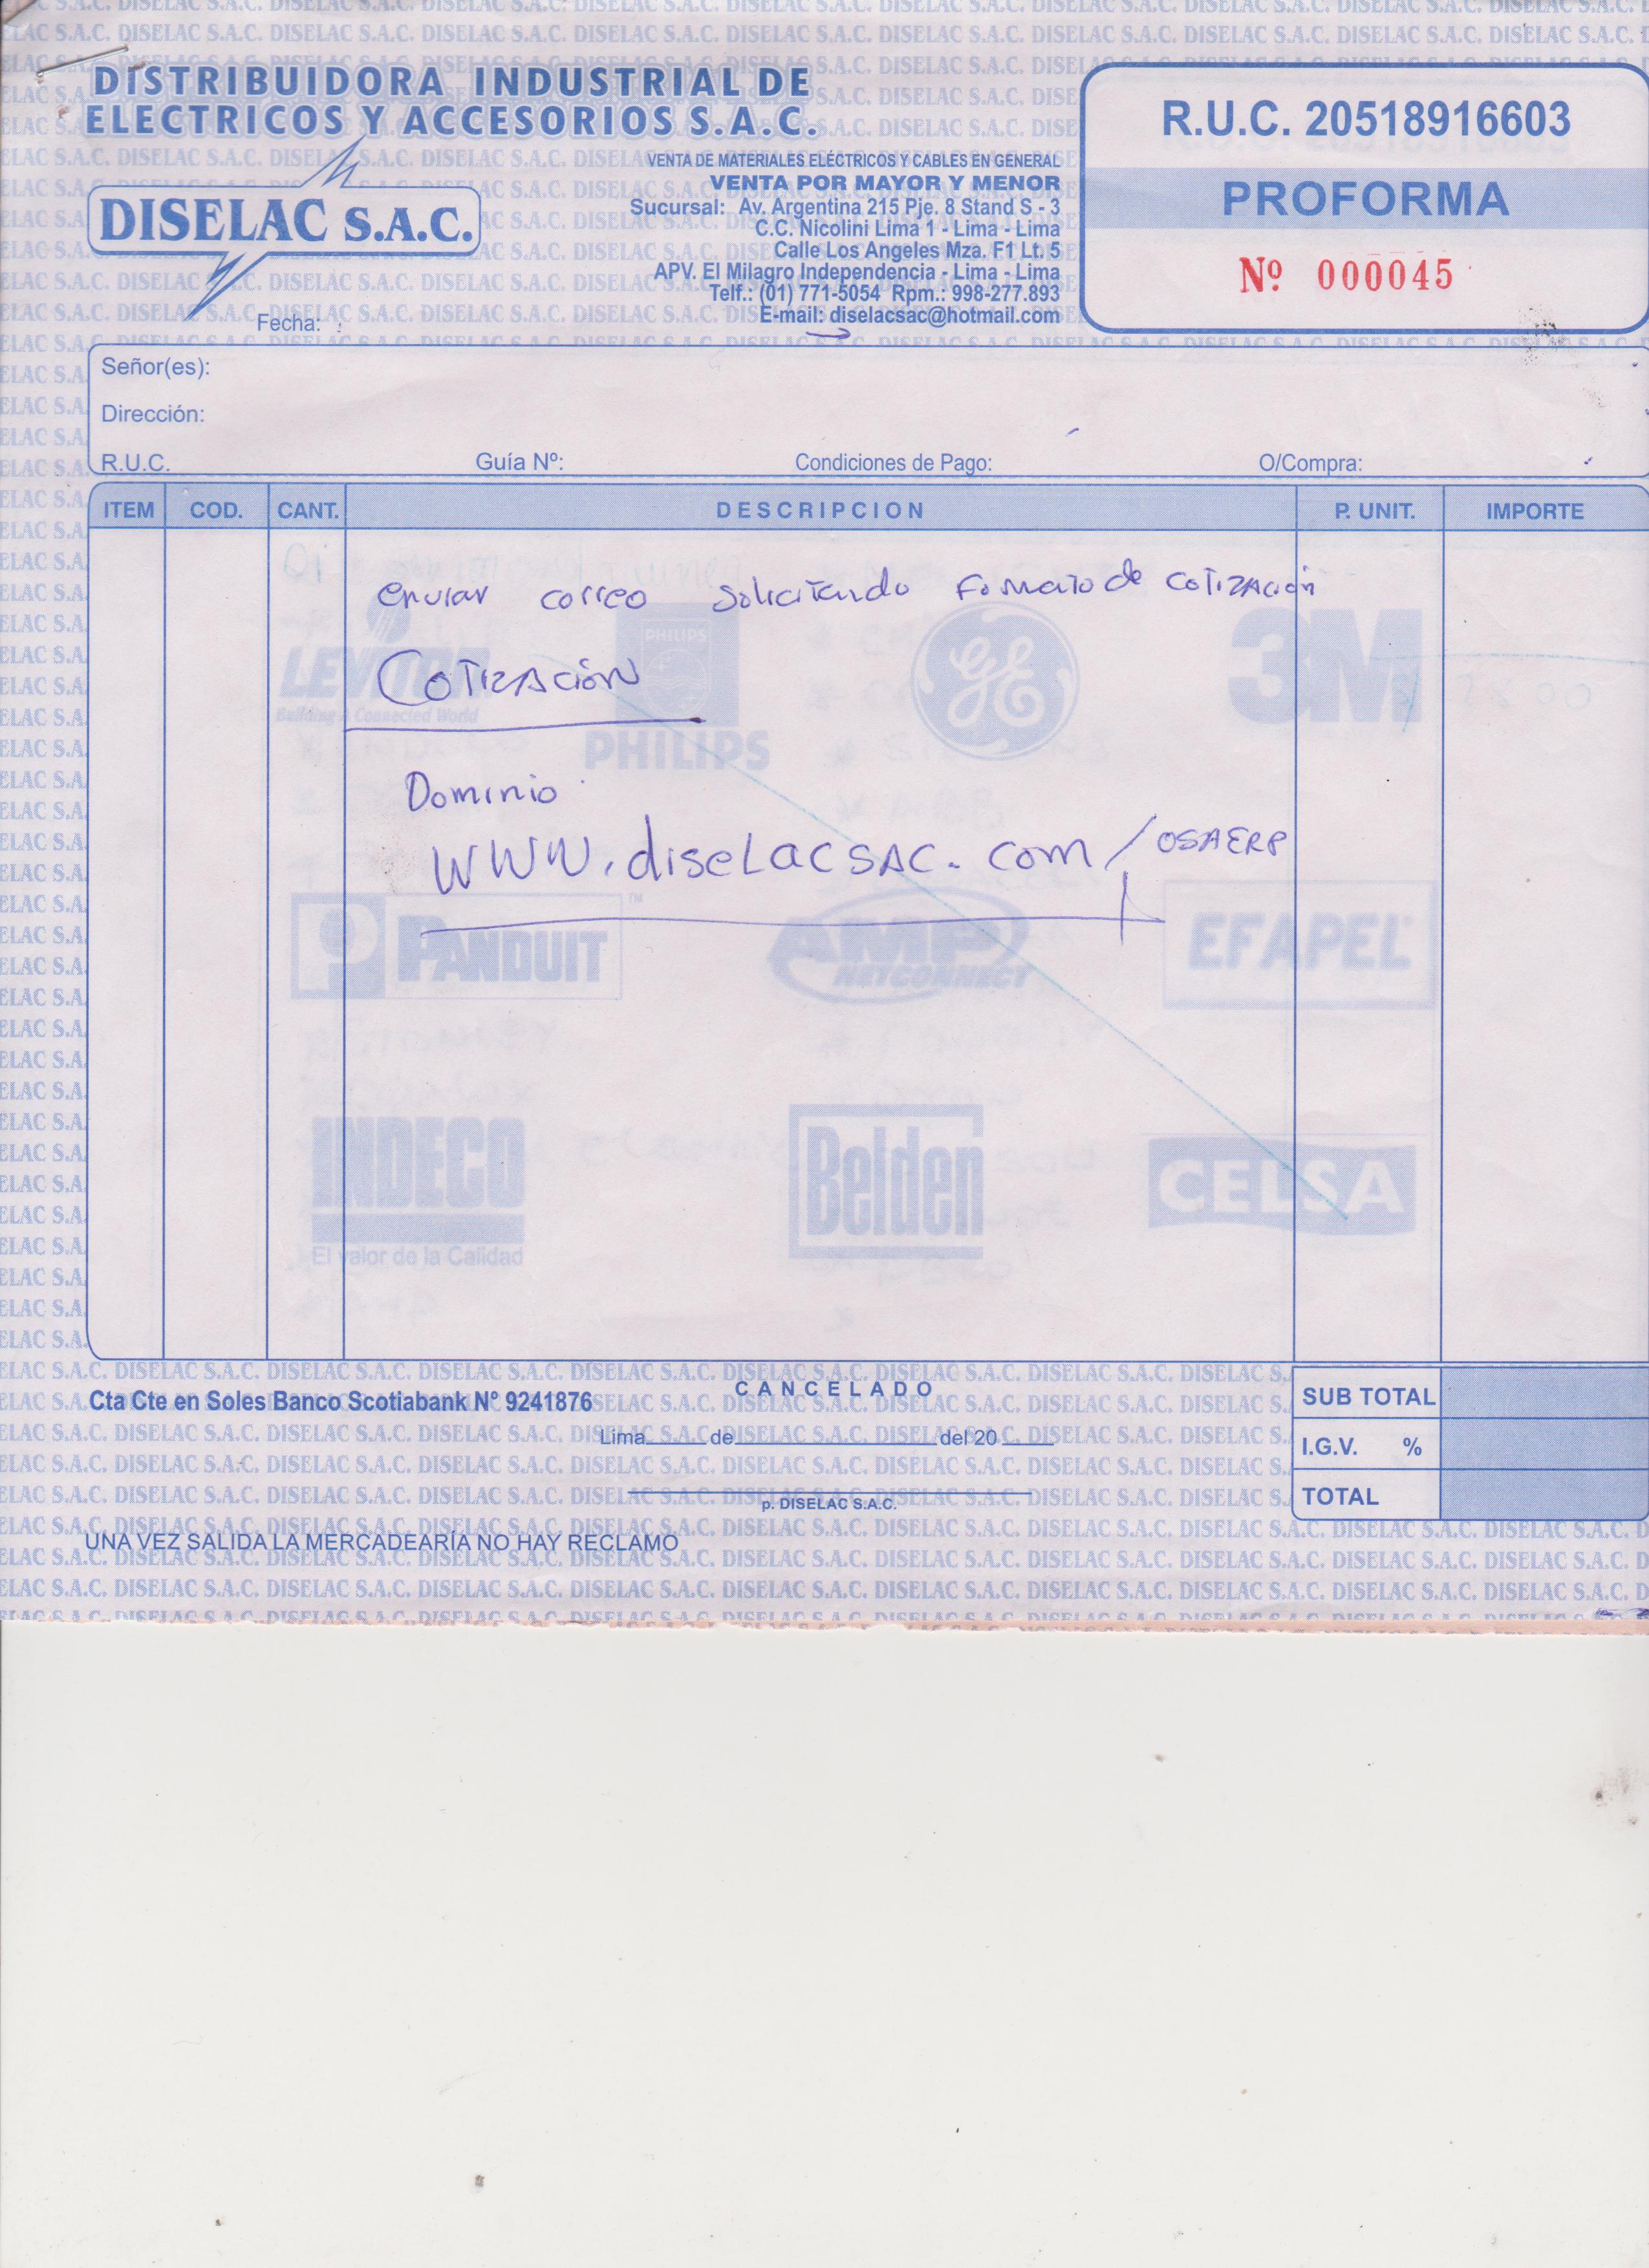 DISTRIBUIDORA INDUSTRIAL DE
ELECTRICOS Y ACCESORIOS S.A.C.
DISELAC S.A.C.
VENTA DE MATERIALES ELÉCTRICOS Y CABLES EN GENERAL
VENTA POR MAYOR Y MENOR
Sucursal: Av. Argentina 215 Pje. 8 Stand S - 3
C.C. Nicolini Lima 1 - Lima - Lima
Calle Los Angeles Mza. F1 Lt. 5
APV. El Milagro Independencia - Lima - Lima
Telf.: (01) 771-5054 Rpm.: 998-277.893
E-mail: diselacsac@hotmail.com
R.U.C. 20518916603
PROFORMA
Nº 000045
Fecha:
Señor(es):
Dirección:
R.U.C. Guía Nº: Condiciones de Pago: O/Compra:
ITEM COD. CANT. DESCRIPCION P. UNIT. IMPORTE
enviar correo solicitando formato de cotización
Cotización
Dominio
www.diselacsac.com/OSAERP
LEVITON
Building A Connected World
PHILIPS
PHILIPS
GE
3M
PANDUIT
AMP
NETCONNECT
EFAPEL
INDECO
El valor de la Calidad
Belden
CELSA
Cta Cte en Soles Banco Scotiabank Nº 9241876
CANCELADO
Lima de del 20
p. DISELAC S.A.C.
SUB TOTAL
I.G.V. %
TOTAL
UNA VEZ SALIDA LA MERCADEARÍA NO HAY RECLAMO